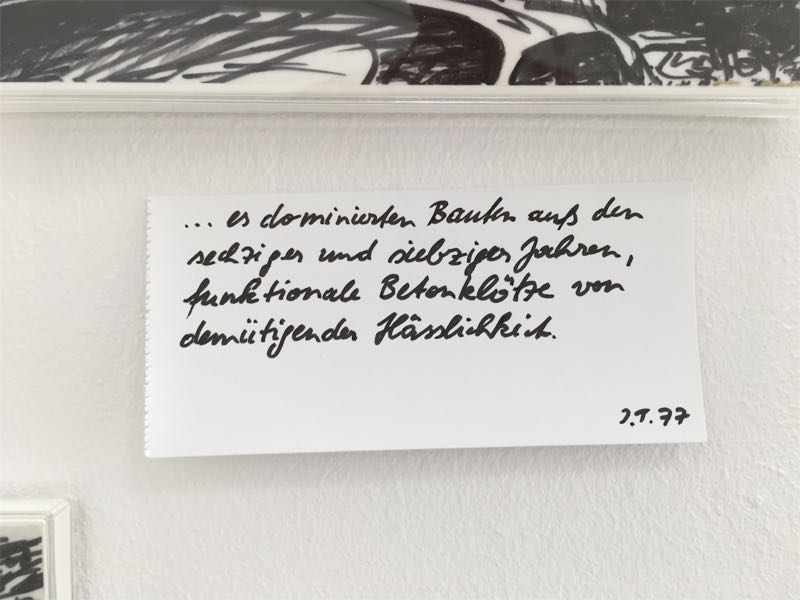 ... es dominierten Bauten auß den
sechziger und siebziger Jahren,
funktionale Betonklötze von
demütigender Hässlichkeit.
J.T. 77